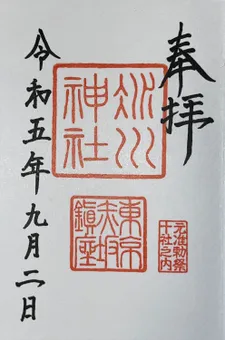 奉拝
氷川
神社
東京
赤坂
鎮座
准勅祭
十社之内
令和五年九月二日